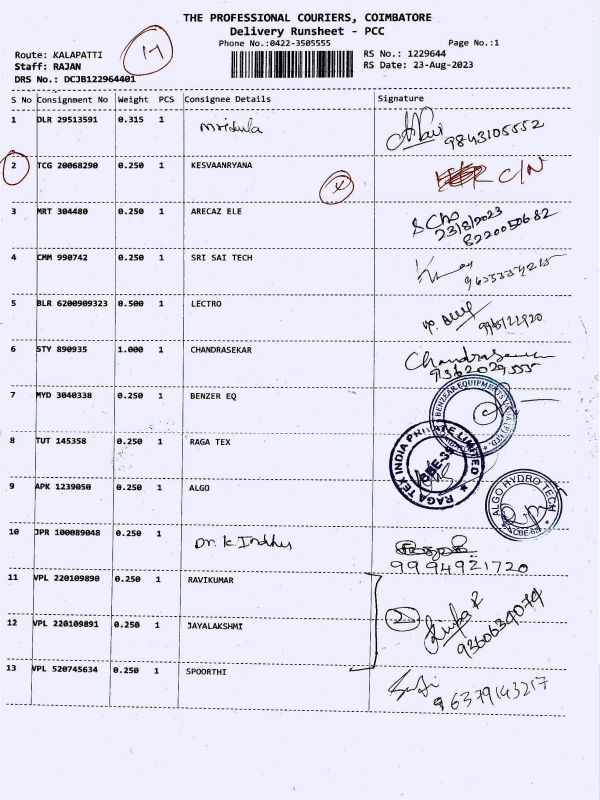 THE PROFESSIONAL COURIERS, COIMBATORE
Delivery Runsheet - PCC
Phone No.:0422-3505555
Page No.:1
Route: KALAPATTI
Staff: RAJAN
DRS No.: DCJB122964401
RS No.: 1229644
RS Date: 23-Aug-2023
S No Consignment No Weight PCS Consignee Details Signature
1 DLR 29513591 0.315 1 Mridula 9843105552
2 TCG 20068290 0.250 1 KESVAANRYANA C/N
3 MRT 304480 0.250 1 ARECAZ ELE
23/8/2023
8220050682
4 CMM 990742 0.250 1 SRI SAI TECH
5 BLR 6200909323 0.500 1 LECTRO
6 STY 890935 1.000 1 CHANDRASEKAR
9362029555
7 MYD 3040338 0.250 1 BENZER EQ
8 TUT 145358 0.250 1 RAGA TEX
RAGA TEX INDIA PRIVATE LIMITED
9 APK 1239050 0.250 1 ALGO
ALGO HYDRO TECH
10 JPR 100089048 0.250 1 Dr. K. Indhu
9994921720
11 VPL 220109890 0.250 1 RAVIKUMAR
12 VPL 220109891 0.250 1 JAYALAKSHMI
2
13 VPL 520745634 0.250 1 SPOORTHI